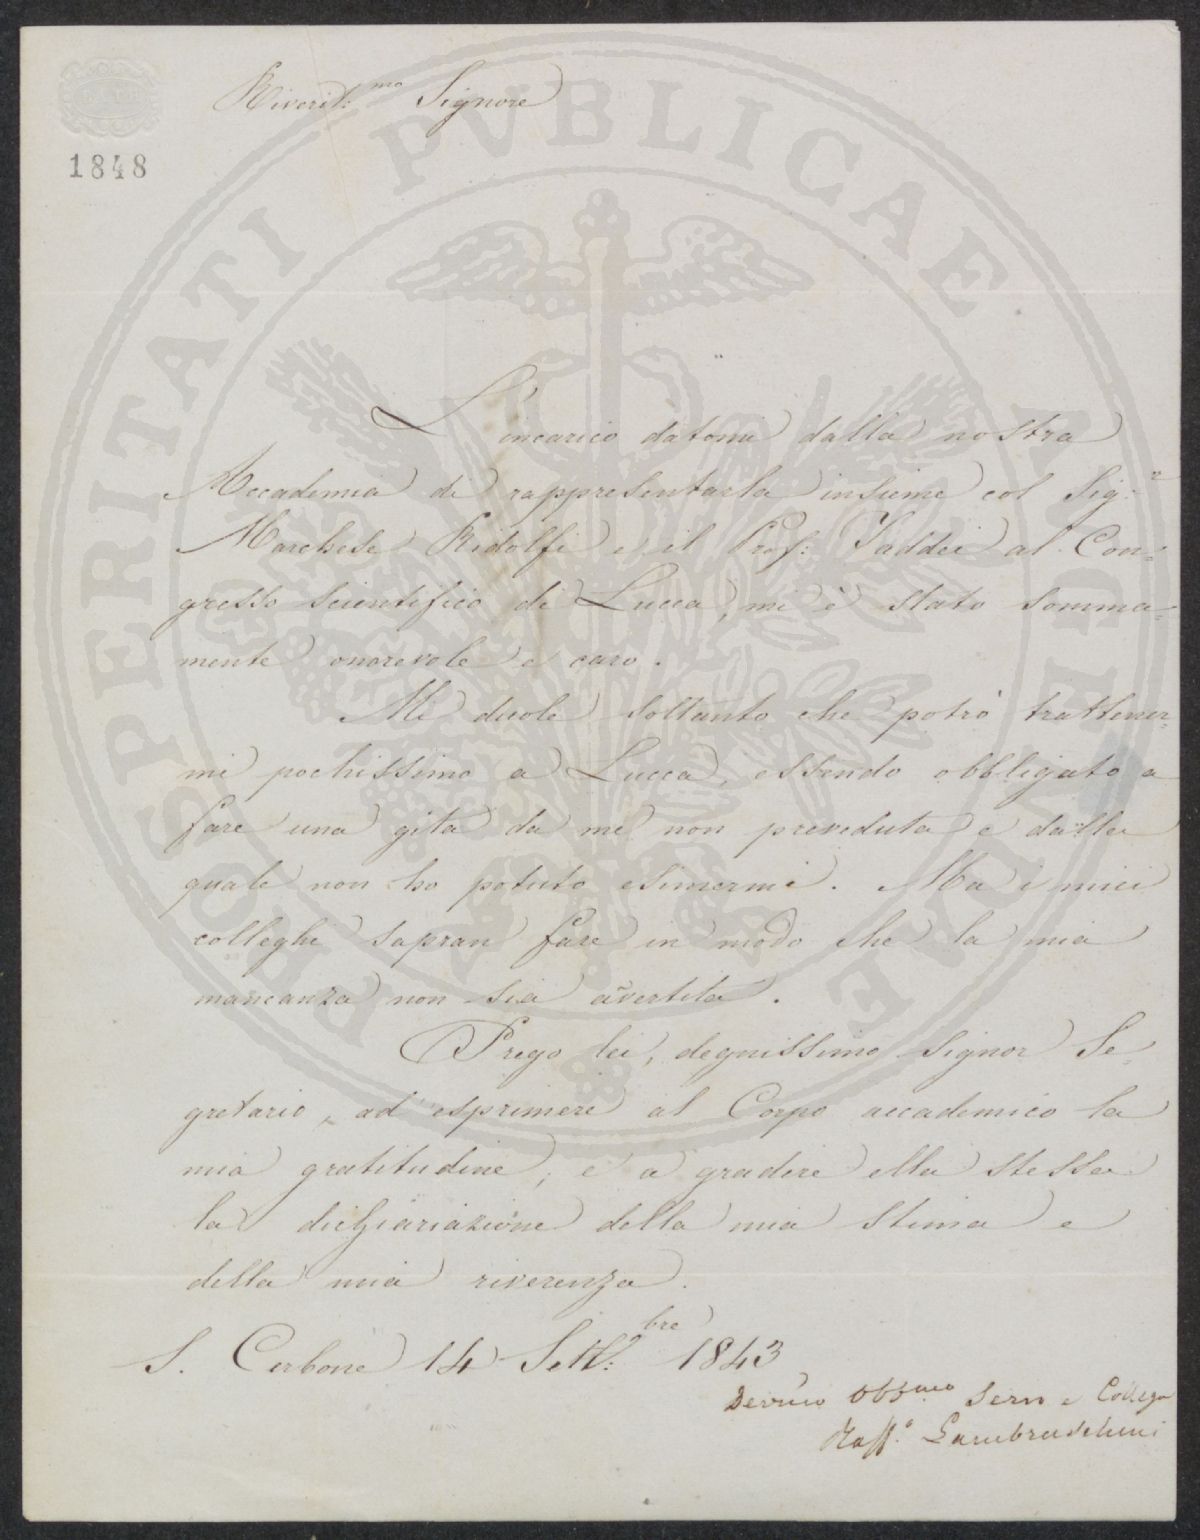 Riverit:mo Signore
1848
L'incarico datomi dalla nostra
Accademia di rappresentarla insieme col Sig:r
Marchese Ridolfi e il Prof: Taddei al Con=
gresso scientifico di Lucca, mi è stato somma=
mente onorevole e caro.
Mi duole soltanto che potrò trattener=
mi pochissimo a Lucca, essendo obbligato a
fare una gita da me non preveduta e dalla
quale non ho potuto esimermi. Ma i miei
colleghi sapran fare in modo che la mia
mancanza non sia avertita.
Prego lei, degnissimo Signor Se=
gretario, ad esprimere al Corpo accademico la
mia gratitudine, e a gradire ella stessa
la dichiariazione della mia stima e
della mia riverenza.
S. Cerbone 14 Sett:bre 1843
Devmo Obbmo Serv e Collega
Raff.o Lambruschini
PROSPERITATI PVBLICAE AVGENDAE